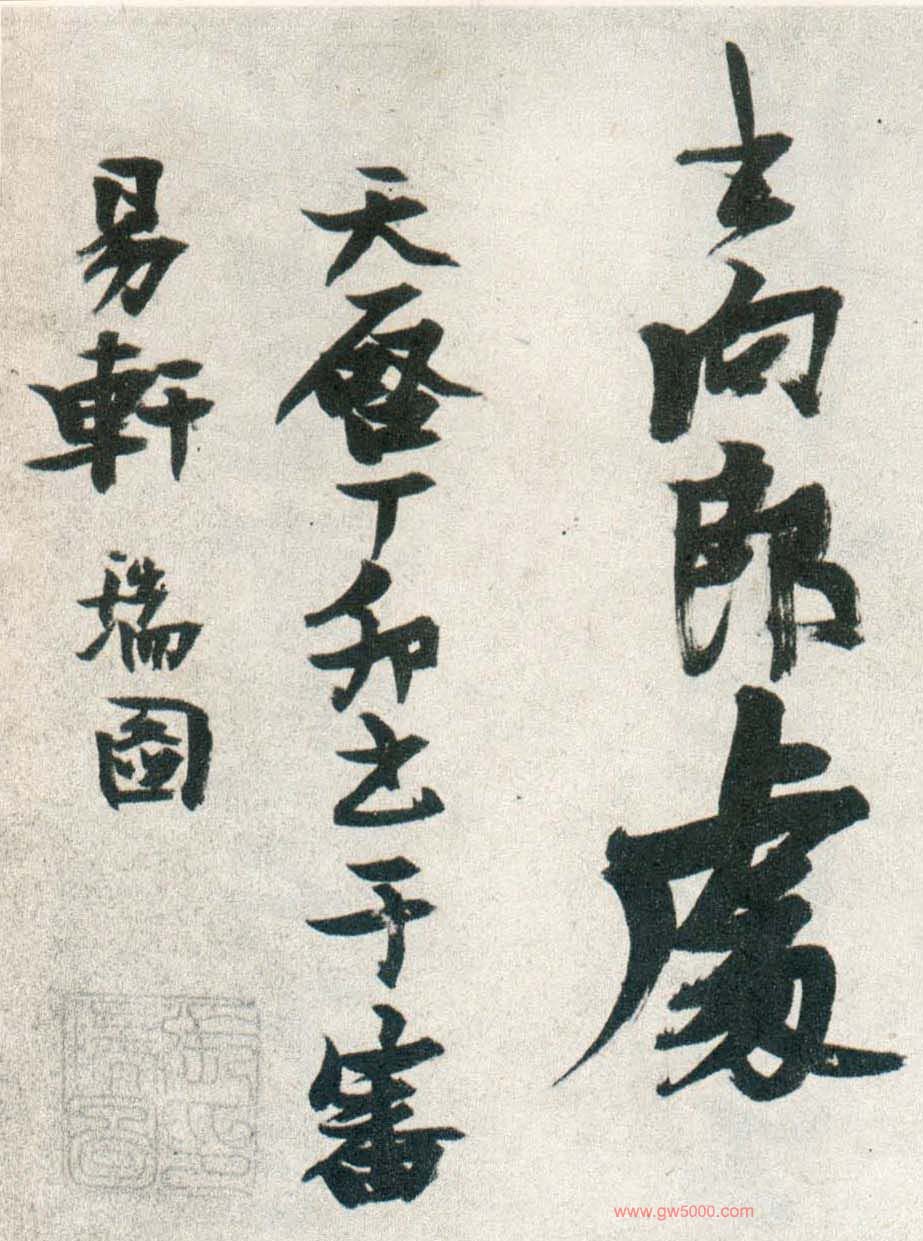 向郎處
天啓丁卯書于審
易軒 瑞圖
www.gw5000.com